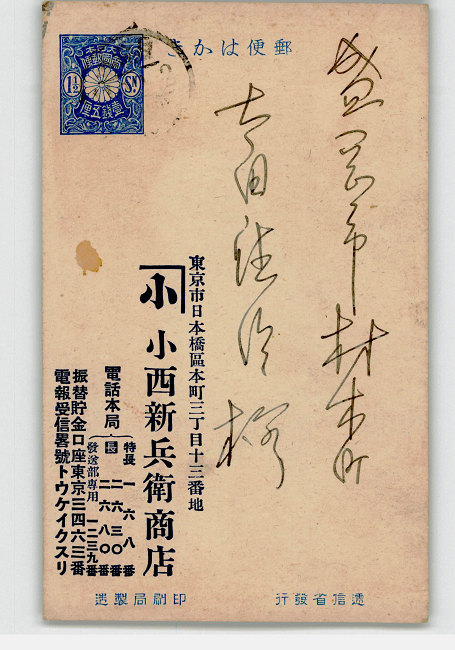 郵便はかき
大日本
帝國郵便
1½ SN
壹錢五厘
盛岡市材木町
東京市日本橋區本町三丁目十三番地
小
小西新兵衛商店
電話本局
特長 一六八番
長 二六三〇番
二六八〇番
發送部専用 一二三九番
振替貯金口座東京三四六三番
電報受信畧號トウケイクスリ
遞信省發行
印刷局製造